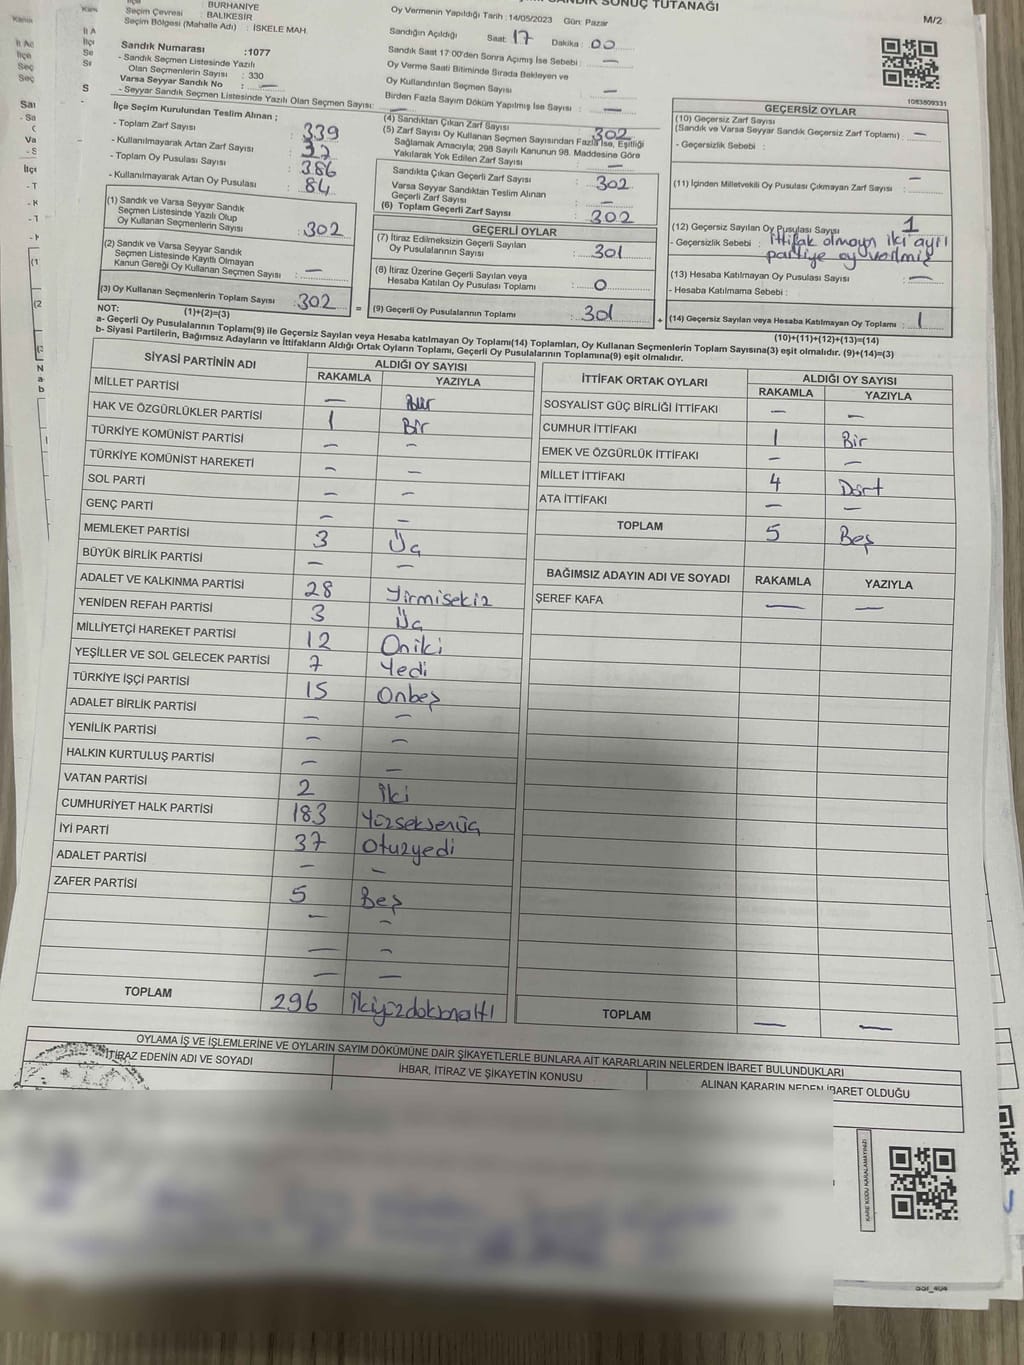 SONUÇ TUTANAĞI
M/2
BURHANİYE
Seçim Çevresi : BALIKESİR
Seçim Bölgesi (Mahalle Adı) : İSKELE MAH.
Sandık Numarası :1077
- Sandık Seçmen Listesinde Yazılı
Olan Seçmenlerin Sayısı : 330
Varsa Seyyar Sandık No : —
- Seyyar Sandık Seçmen Listesinde Yazılı Olan Seçmen Sayısı: —
Oy Vermenin Yapıldığı Tarih : 14/05/2023 Gün: Pazar
Sandığın Açıldığı Saat: 17 Dakika : 00
Sandık Saat 17:00'den Sonra Açımış İse Sebebi : —
Oy Verme Saati Bitiminde Sırada Bekleyen ve
Oy Kullandırılan Seçmen Sayısı : —
Birden Fazla Sayım Döküm Yapılmış İse Sayısı : —
1083809331
İlçe Seçim Kurulundan Teslim Alınan ;
- Toplam Zarf Sayısı : 339
- Kullanılmayarak Artan Zarf Sayısı : 37
- Toplam Oy Pusulası Sayısı : 386
- Kullanılmayarak Artan Oy Pusulası : 84
(1) Sandık ve Varsa Seyyar Sandık
Seçmen Listesinde Yazılı Olup
Oy Kullanan Seçmenlerin Sayısı : 302
(2) Sandık ve Varsa Seyyar Sandık
Seçmen Listesinde Kayıtlı Olmayan
Kanun Gereği Oy Kullanan Seçmen Sayısı : —
(3) Oy Kullanan Seçmenlerin Toplam Sayısı : 302
(1)+(2)=(3)
(4) Sandıktan Çıkan Zarf Sayısı : 302
(5) Zarf Sayısı Oy Kullanan Seçmen Sayısından Fazla İse, Eşitliği
Sağlamak Amacıyla; 298 Sayılı Kanunun 98. Maddesine Göre
Yakılarak Yok Edilen Zarf Sayısı : —
Sandıkta Çıkan Geçerli Zarf Sayısı : 302
Varsa Seyyar Sandıktan Teslim Alınan
Geçerli Zarf Sayısı : —
(6) Toplam Geçerli Zarf Sayısı : 302
GEÇERLİ OYLAR
(7) İtiraz Edilmeksizin Geçerli Sayılan
Oy Pusulalarının Sayısı : 301
(8) İtiraz Üzerine Geçerli Sayılan veya
Hesaba Katılan Oy Pusulası Toplamı : 0
= (9) Geçerli Oy Pusulalarının Toplamı : 301 +
GEÇERSİZ OYLAR
(10) Geçersiz Zarf Sayısı
(Sandık ve Varsa Seyyar Sandık Geçersiz Zarf Toplamı) : —
- Geçersizlik Sebebi :
(11) İçinden Milletvekili Oy Pusulası Çıkmayan Zarf Sayısı : —
(12) Geçersiz Sayılan Oy Pusulası Sayısı : 1
- Geçersizlik Sebebi : İttifak olmayan iki ayrı
partiye oy verilmiş
(13) Hesaba Katılmayan Oy Pusulası Sayısı : —
- Hesaba Katılmama Sebebi :
(14) Geçersiz Sayılan veya Hesaba Katılmayan Oy Toplamı : 1
(10)+(11)+(12)+(13)=(14)
NOT:
a- Geçerli Oy Pusulalarının Toplamı(9) ile Geçersiz Sayılan veya Hesaba katılmayan Oy Toplamı(14) Toplamları, Oy Kullanan Seçmenlerin Toplam Sayısına(3) eşit olmalıdır. (9)+(14)=(3)
b- Siyasi Partilerin, Bağımsız Adayların ve İttifakların Aldığı Ortak Oyların Toplamı, Geçerli Oy Pusulalarının Toplamına(9) eşit olmalıdır.
SİYASİ PARTİNİN ADI ALDIĞI OY SAYISI
RAKAMLA YAZIYLA
MİLLET PARTİSİ —
HAK VE ÖZGÜRLÜKLER PARTİSİ 1 Bir
TÜRKİYE KOMÜNİST PARTİSİ — —
TÜRKİYE KOMÜNİST HAREKETİ — —
SOL PARTİ — —
GENÇ PARTİ — —
MEMLEKET PARTİSİ 3 Üç
BÜYÜK BİRLİK PARTİSİ — —
ADALET VE KALKINMA PARTİSİ 28 Yirmisekiz
YENİDEN REFAH PARTİSİ 3 Üç
MİLLİYETÇİ HAREKET PARTİSİ 12 Oniki
YEŞİLLER VE SOL GELECEK PARTİSİ 7 Yedi
TÜRKİYE İŞÇİ PARTİSİ 15 Onbeş
ADALET BİRLİK PARTİSİ — —
YENİLİK PARTİSİ — —
HALKIN KURTULUŞ PARTİSİ — —
VATAN PARTİSİ 2 İki
CUMHURİYET HALK PARTİSİ 183 Yüzseksenüç
İYİ PARTİ 37 Otuzyedi
ADALET PARTİSİ — —
ZAFER PARTİSİ 5 Beş
— —
— —
— —
TOPLAM 296 İkiyüzdoksanaltı
İTTİFAK ORTAK OYLARI ALDIĞI OY SAYISI
RAKAMLA YAZIYLA
SOSYALİST GÜÇ BİRLİĞİ İTTİFAKI — —
CUMHUR İTTİFAKI 1 Bir
EMEK VE ÖZGÜRLÜK İTTİFAKI — —
MİLLET İTTİFAKI 4 Dört
ATA İTTİFAKI — —
TOPLAM 5 Beş
BAĞIMSIZ ADAYIN ADI VE SOYADI RAKAMLA YAZIYLA
ŞEREF KAFA — —
TOPLAM — —
OYLAMA İŞ VE İŞLEMLERİNE VE OYLARIN SAYIM DÖKÜMÜNE DAİR ŞİKAYETLERLE BUNLARA AİT KARARLARIN NELERDEN İBARET BULUNDUKLARI
İTİRAZ EDENİN ADI VE SOYADI İHBAR, İTİRAZ VE ŞİKAYETİN KONUSU ALINAN KARARIN NEDEN İBARET OLDUĞU
KARE KODU KARALAMAYINIZ!